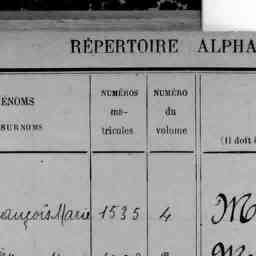 RÉPERTOIRE ALPHA
ÉNOMS
SURNOMS
NUMÉROS
ma-
tricules
NUMÉRO
du
volume
(Il doit
ançois Marie 1535 4 M